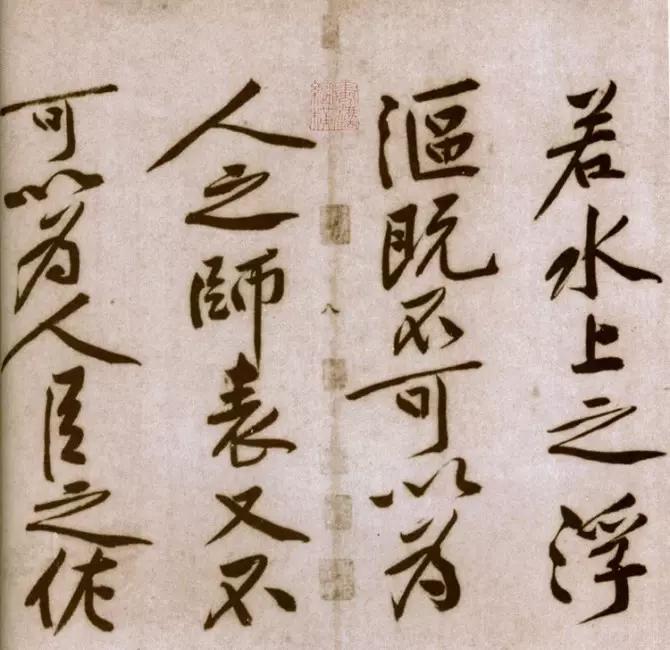 若水上之浮
漚既不可以為
人之師表又不
可以為人臣之佐